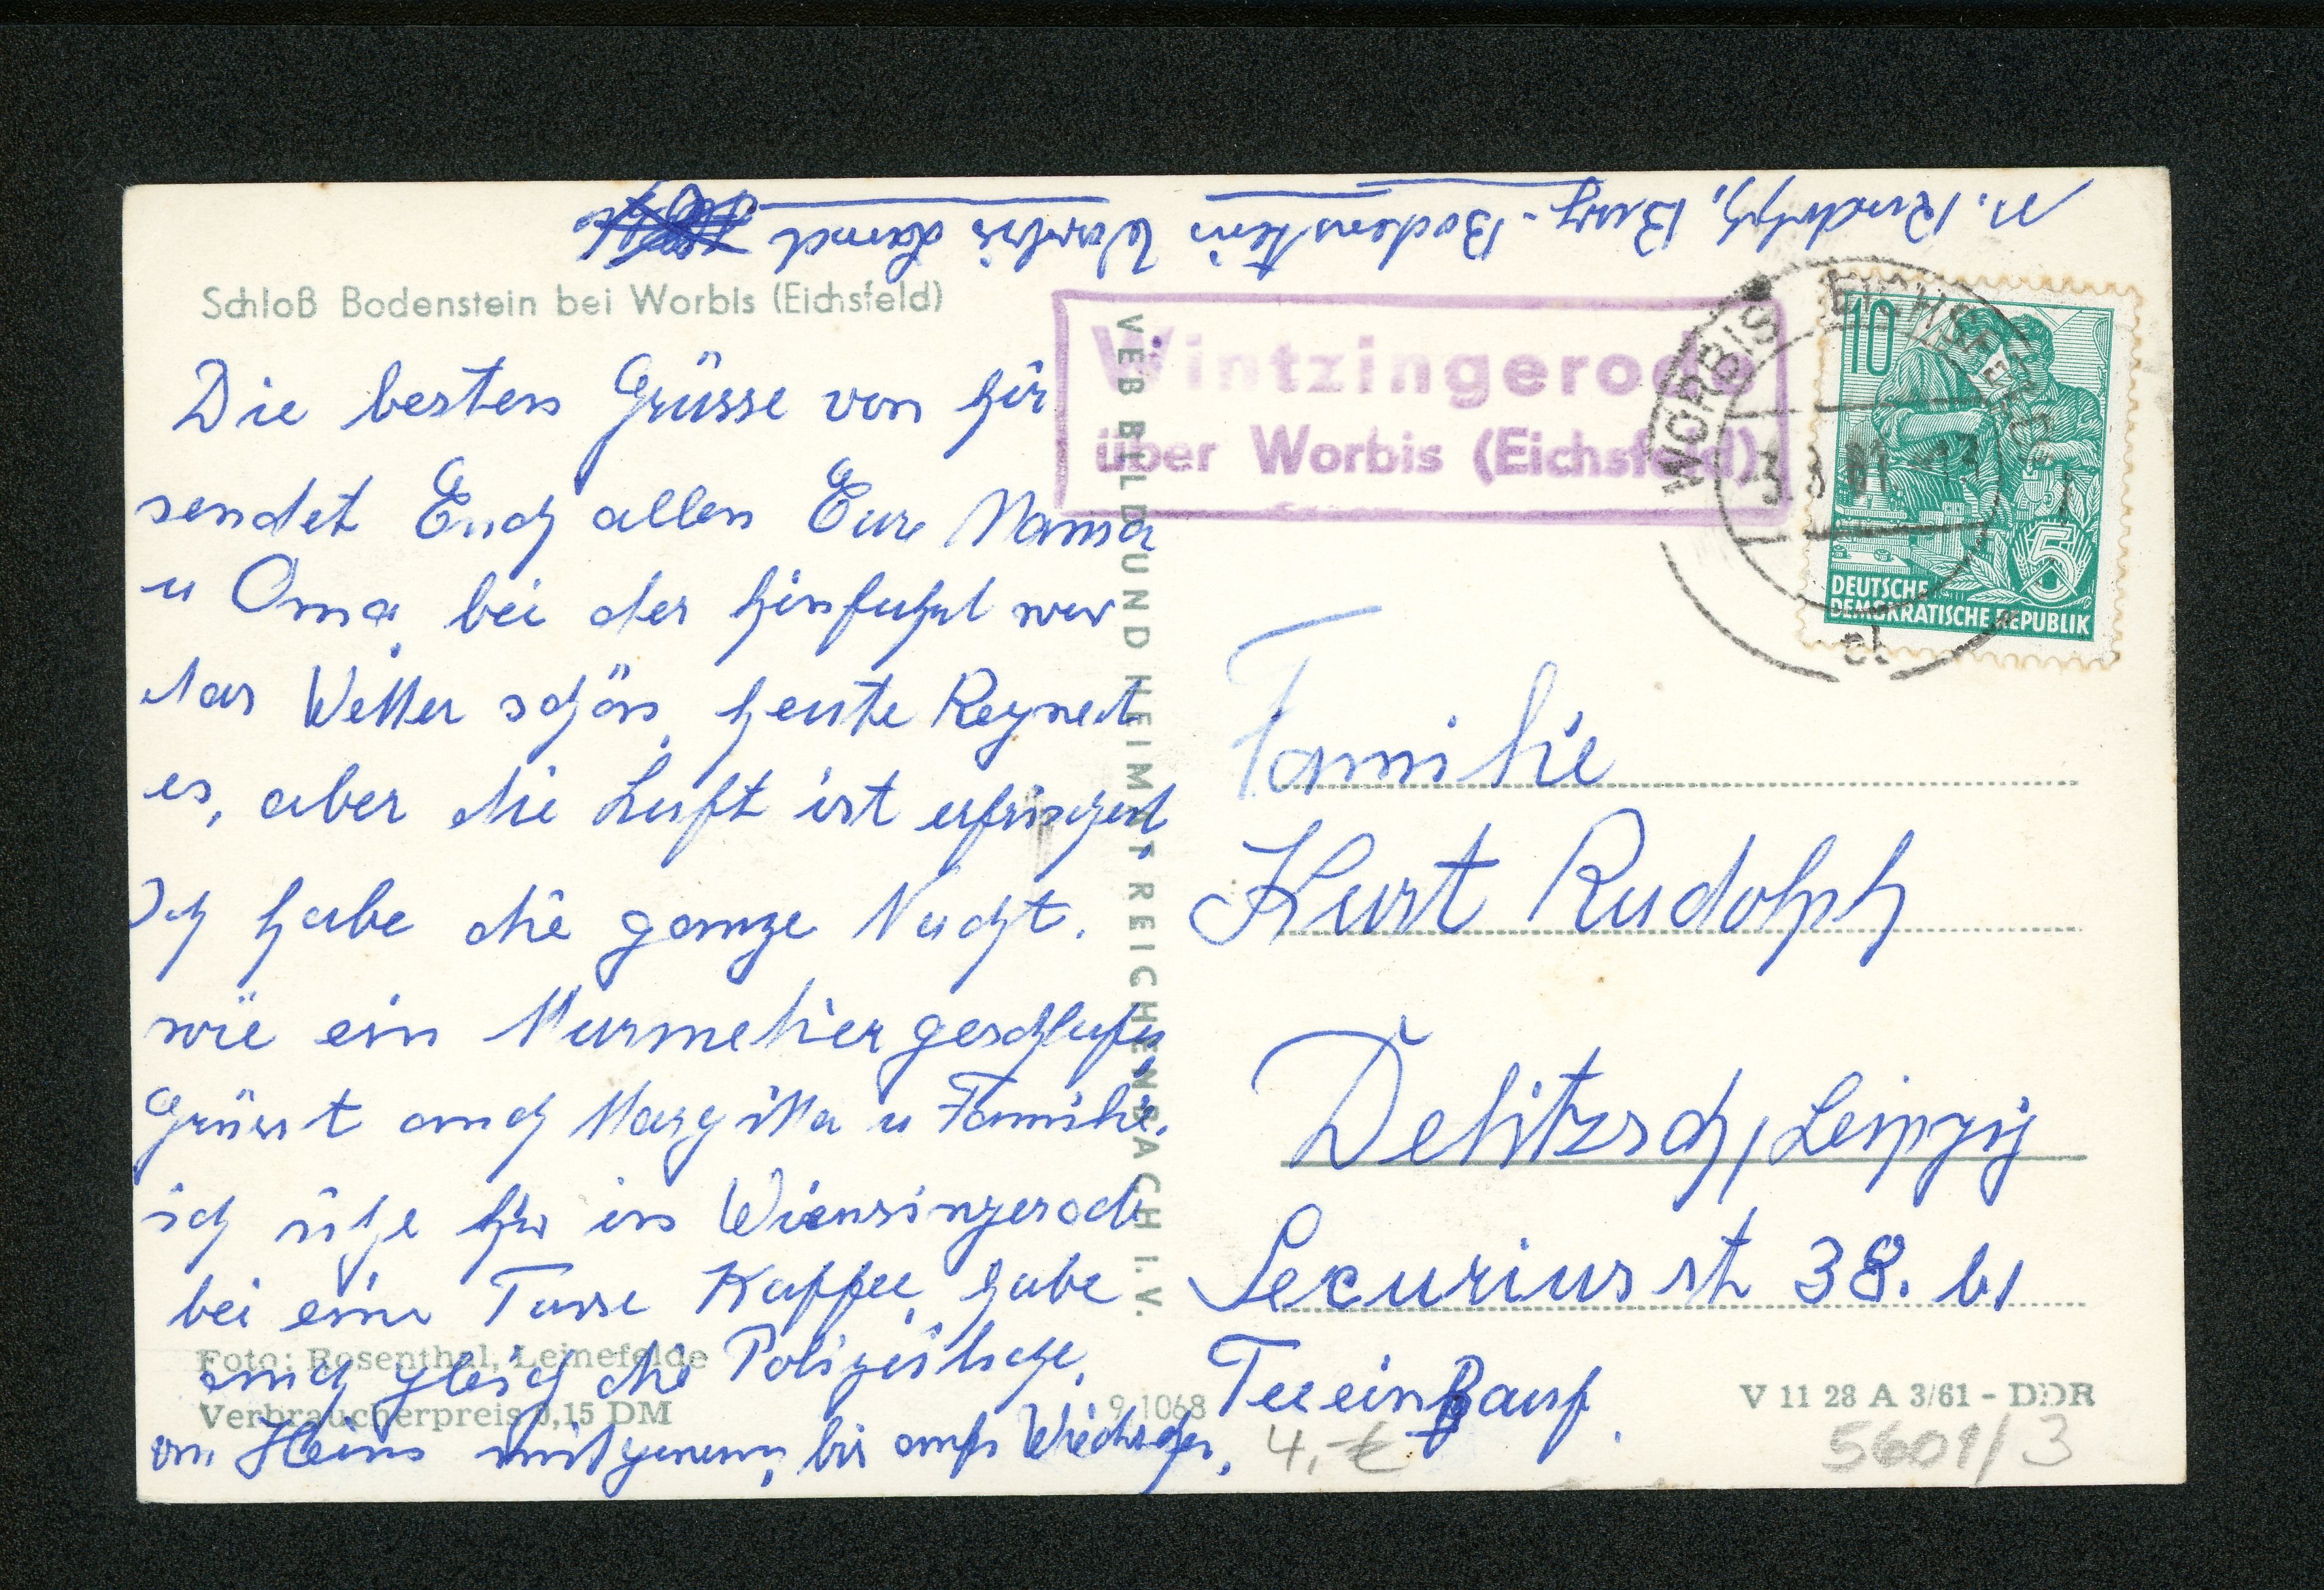 M. Rudolph, Burg-Bodenstein Worbis Land
Schloß Bodenstein bei Worbis (Eichsfeld)
Die besten Grüsse von hir
sendet Euch allen Eure Mama
u Oma, bei der Hinfuhrt war
das Wetter schön, heute Regnet
es, aber die Luft ist erfrischent
Ich habe die ganze Nacht.
wie ein Murmeltier geschlafen,
Grüsst auch Margitta u Familie.
ich sitze hir in Wienzingerode
bei eine Tasse Kaffee, habe
auch gleich die Polizeiliche,
von Heins mitgenomm, bis aufs
Foto: Rosenthal, Leinefelde
Verbraucherpreis 0,15 DM
9 1068
VEB BILD UND HEIMAT REICHENBACH I. V.
Wintzingerode
über Worbis (Eichsfeld)
WORBIS EICHSFELD
10
5
DEUTSCHE
DEMOKRATISCHE REPUBLIK
Familie
Kurt Rudolph
Delitzsch, Leipzig
Securiusst 38. b1
V 11 28 A 3/61 - DDR
4,- €
5601/3